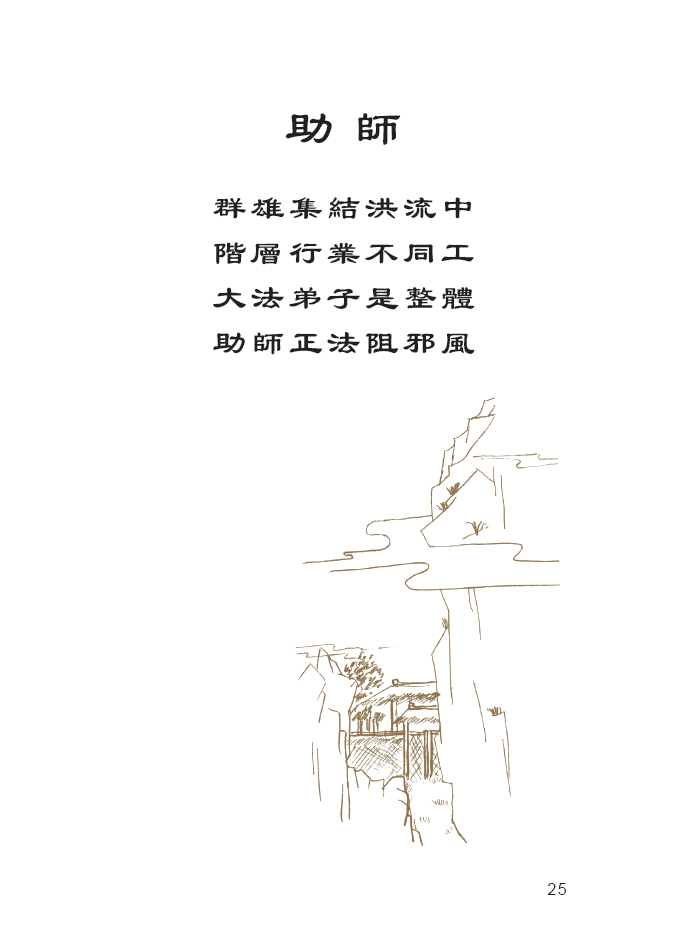 助師
群雄集結洪流中
階層行業不同工
大法弟子是整體
助師正法阻邪風
25